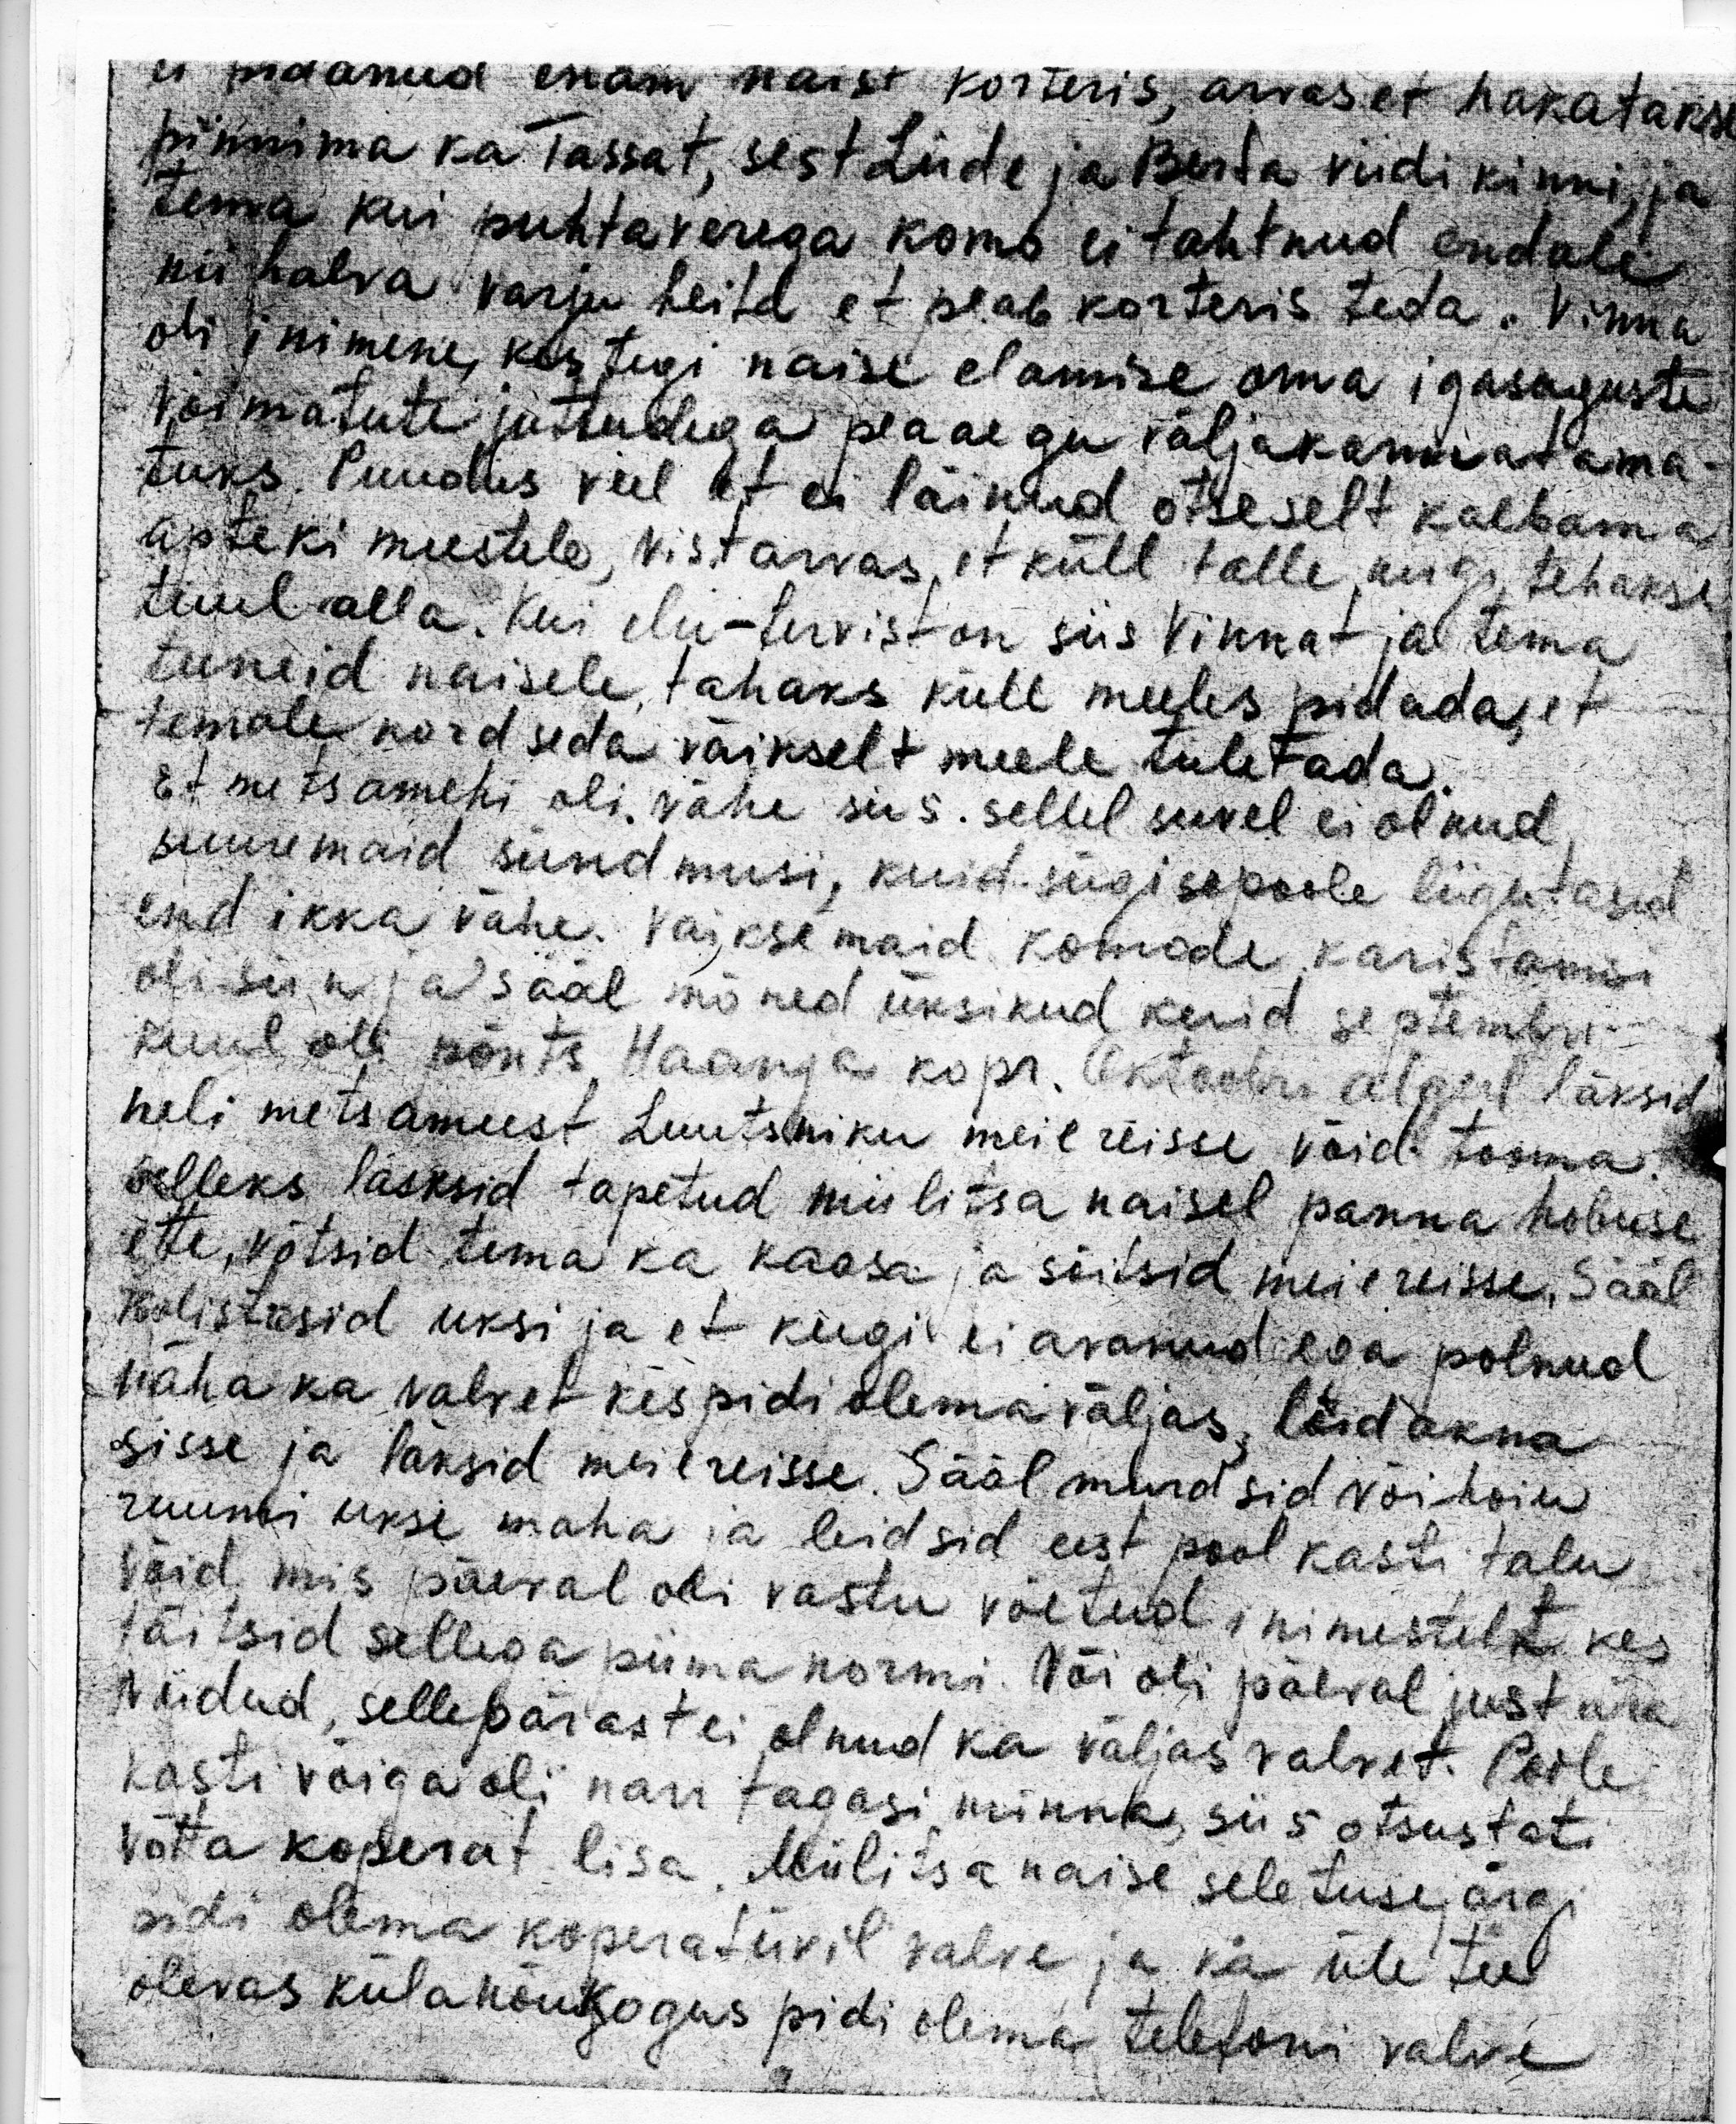 ei pidanud enam naist korteris, arvas et hakatakse
pinnima ka Tassat, sest Liide ja Berta viidi kinni, ja
tema kui puhtaverega komo ei tahtnud endale
nii halva varju heita et peab korteris teda. Vinna
oli inimene, kes tegi naise elamise oma igasuguste
võimatute juttudega peaaegu väljakannatama-
tuks. Puudus veel et ei läinud otseselt kaebama
apteeki meestele, vist arvas, et küll talle tehakse
tuul alla. Kui elu-tervist on siis Vinnat ja tema
teeneid naisele, tahaks küll meeles pidada, et
temale kord seda väikselt meele tuletada.
Et metsamehi oli vähe siis sellel suvel ei olnud
suuremaid sündmusi, kuid sügisepoole liigutasid
end ikka vähe. Väiksemaid komode karistamisi
oli siin ja sääl mõned üksikud kuid septembri
kuul oli põnts Haanja kopr. Oktoobri algul läksid
neli metsameest Luutsniku meiereisse võid tooma.
selleks läsksid tapetud miilitsa naisel panna hobuse
ette, võtsid tema ka kaasa ja sõitsid meiereisse. Sääl
kolistasid uksi ja et keegi ei avanud ega polnud
näha ka valvet kes pidi olema väljas, lõid akna
sisse ja läksid meiereisse. Sääl murdsid võihoiu
ruumi ukse maha ja leidsid eest pool kasti talu
võid mis päeval oli vastu võetud inimestelt kes
täitsid sellega piima normi. Või oli päeval just ära
viidud, sellepärast ei olnud ka väljas valvet. Poole
kasti võiga oli narr tagasi minna, siis otsustati
võtta koperat lisa. Miilitsa naise seletuse järgi
pidi olema koperatiivil valve ja ka üle tee
olevas külanõukogus pidi olema telefoni valve